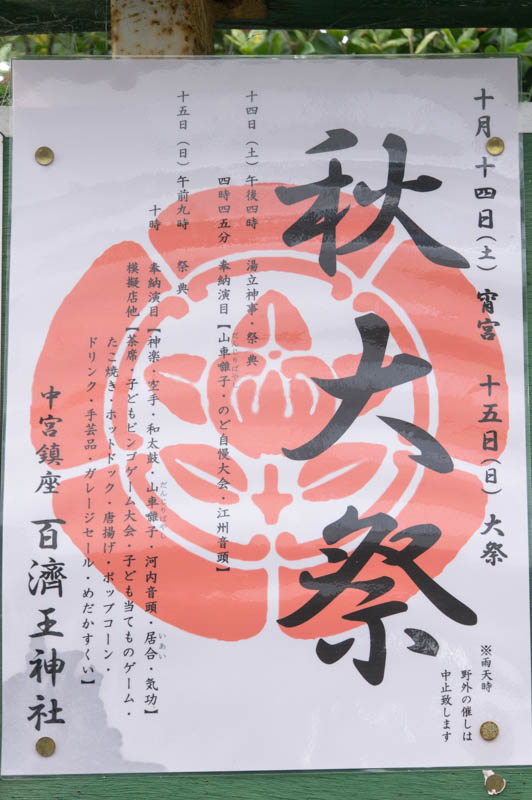 十月十四日（土）宵宮 十五日（日）大祭
※雨天時
野外の催しは
中止致します
秋大祭
十四日（土）午後四時 湯立神事・祭典
四時四五分 奉納演目【山車囃子・のど自慢大会・江州音頭】
だんじりばやし
十五日（日）午前九時 祭典
十時 奉納演目【神楽・空手・和太鼓・山車囃子・河内音頭・居合・気功】
だんじりばやし
いあい
模擬店他【茶席・子どもビンゴゲーム大会・子ども当てものゲーム・
たこ焼き・ホットドック・唐揚げ・ポップコーン・
ドリンク・手芸品・ガレージセール・めだかすくい】
中宮鎮座 百濟王神社